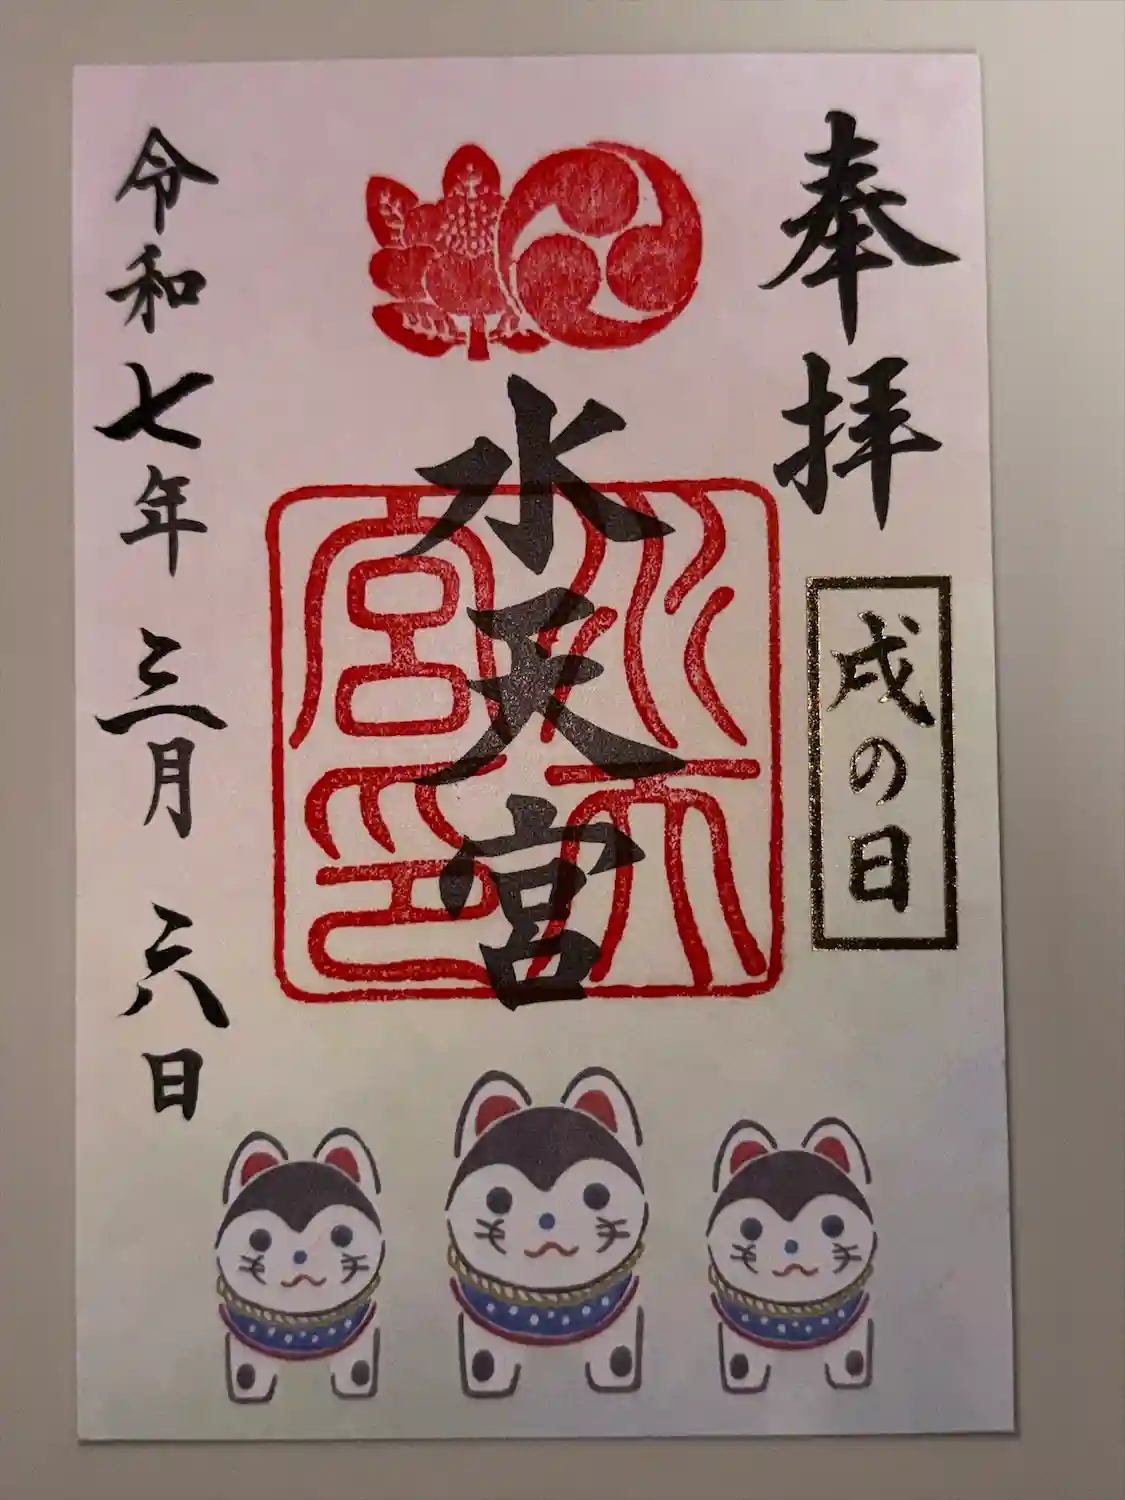 奉拝
戌の日
水天宮
水天
宮印
令和七年三月六日